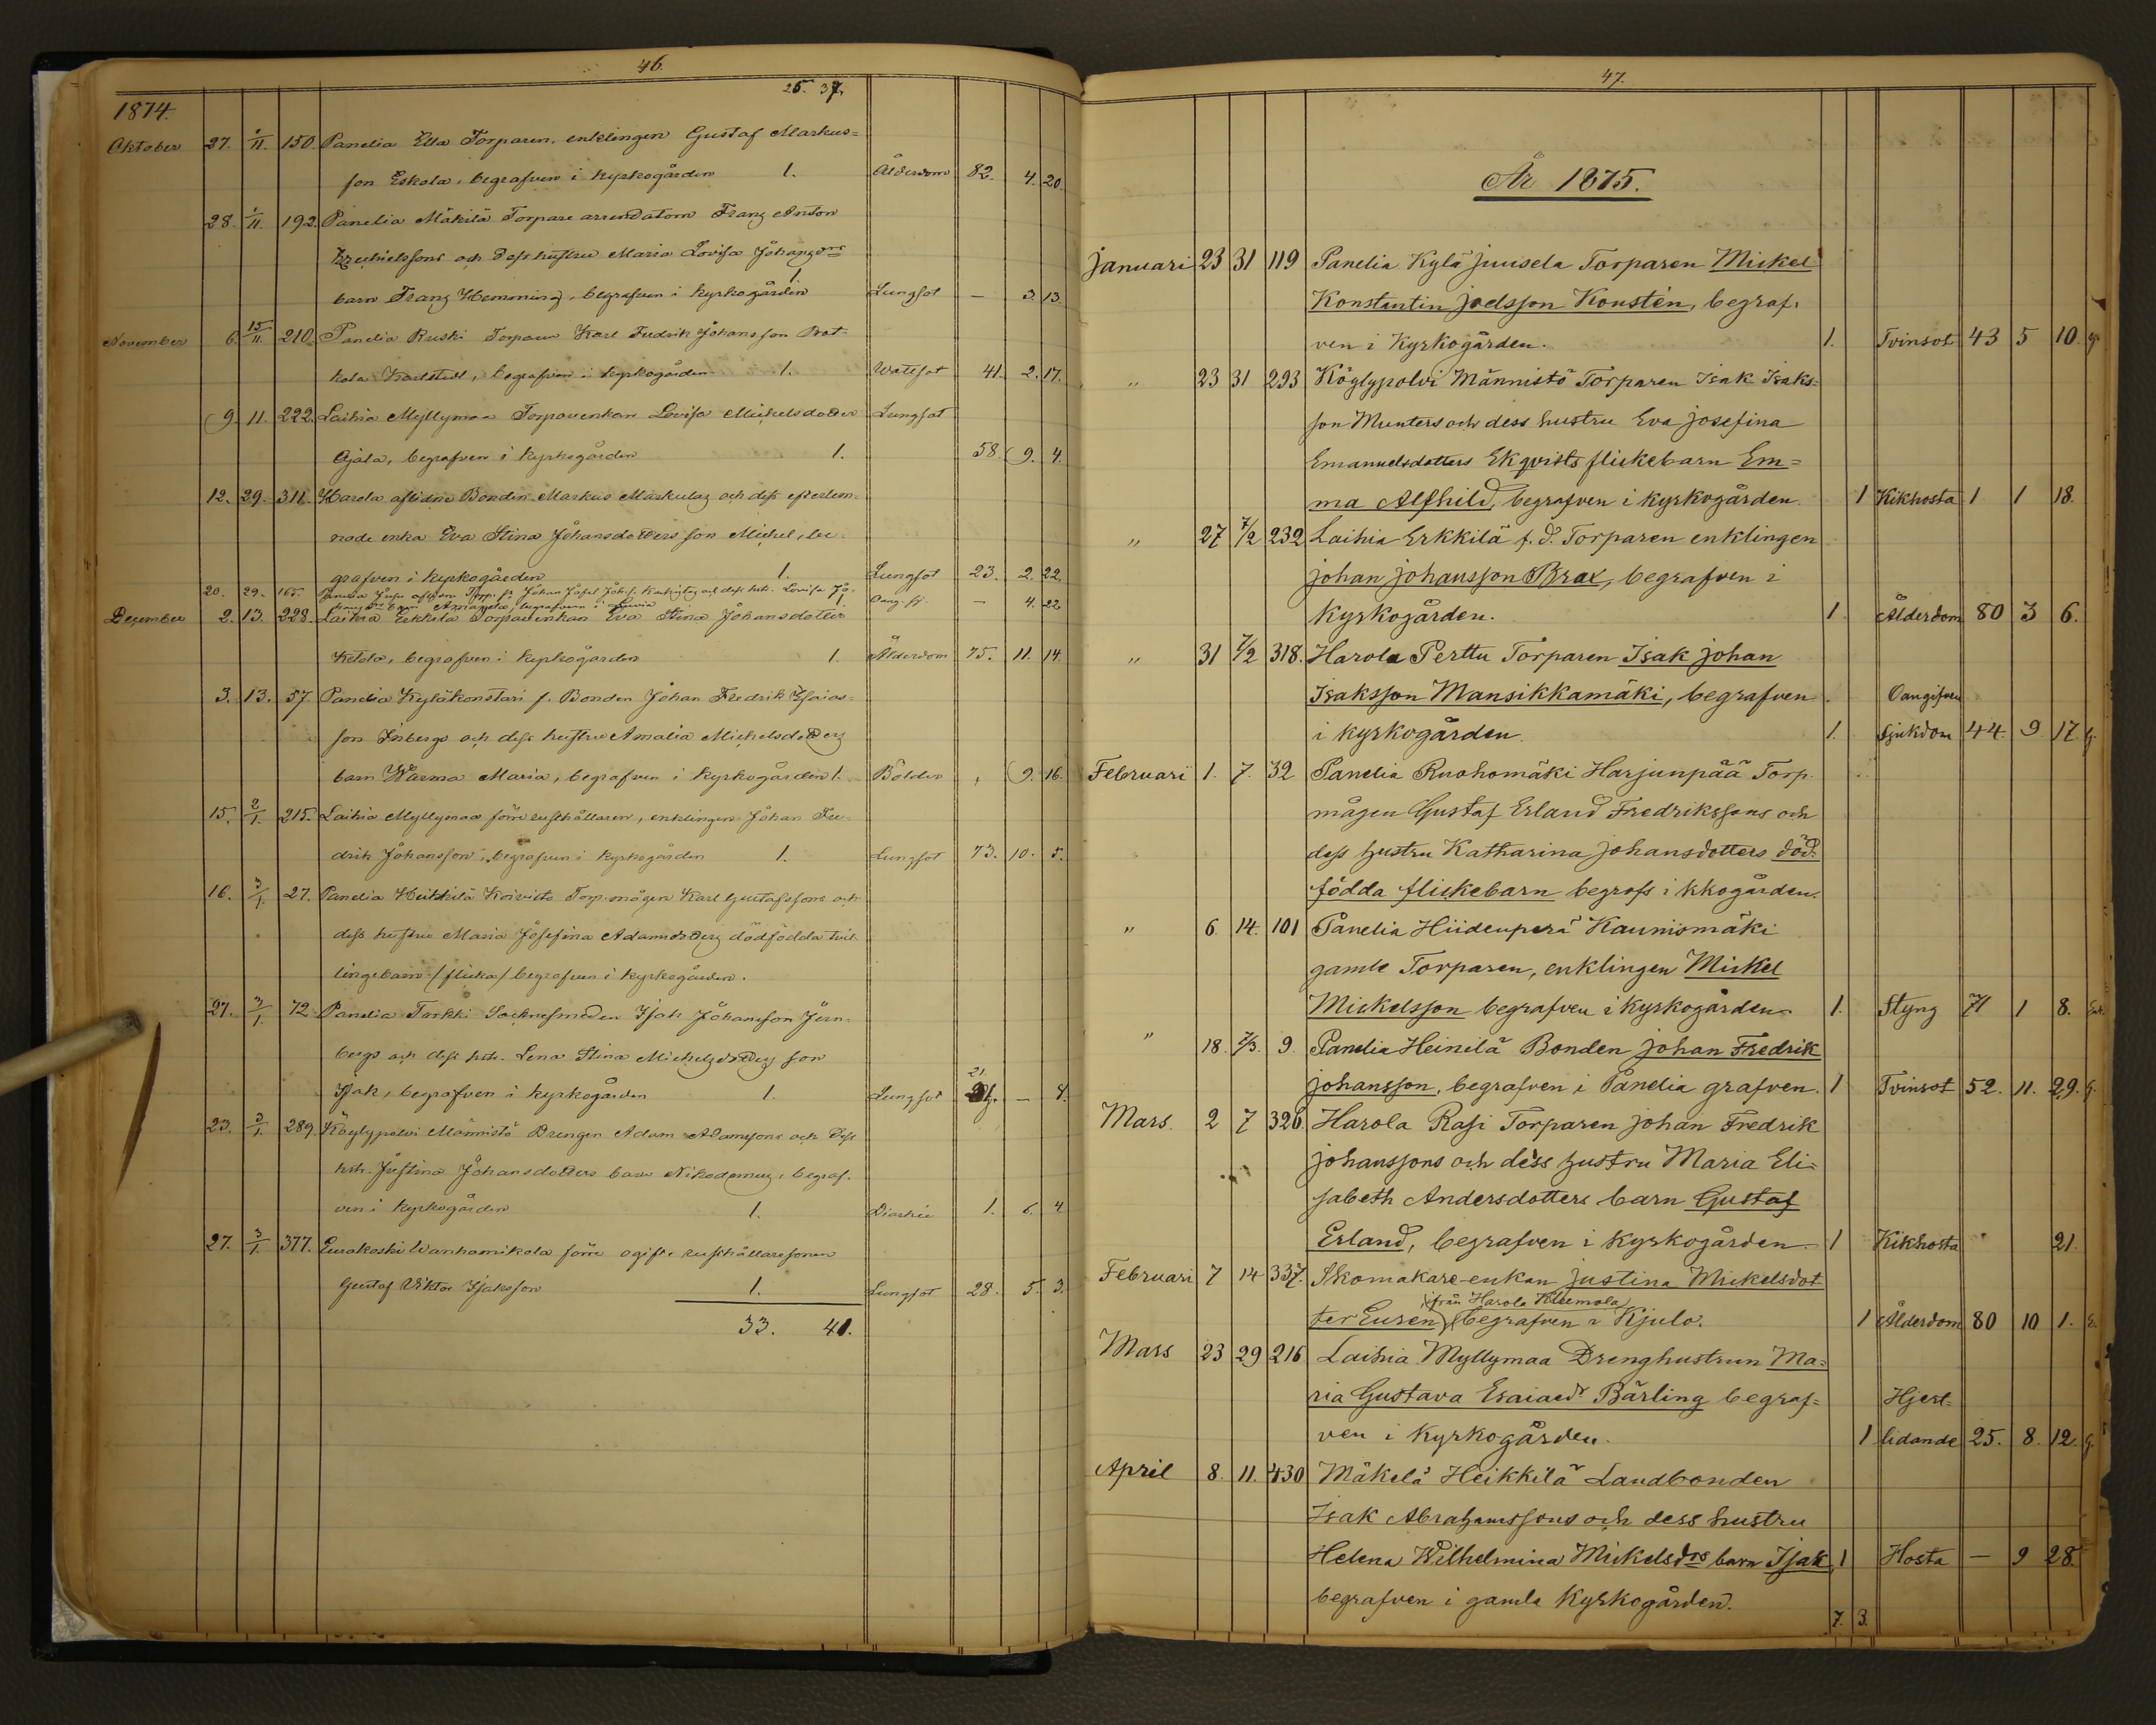 46.
25. 37.
1874.
Oktober 27. 1/11. 150. Panelia Ella Torparen, enklingen Gustaf Markus=
son Eskola, begrafven i kyrkogården 1. Ålderdom 82. 4. 20.
28. 1/11. 192. Panelia Mäkilä Torpare arrendatorn Franz Anton
och dess hustru Maria Lovisa
barn Franz Hemming, begrafven i kyrkogården 1. Lungsot — 3. 13.
November 6. 15/11. 210. Panelia Ruski Torparen Karl Fredrik Johansson
Karlstedt, begrafven i kyrkogården 1. Wattsot 41. 2. 17.
9. 11. 222. Laihia Myllymaa Torparenkan Lovisa Michelsdotter Lungsot
Ojala, begrafven i kyrkogården 1. 58. 9. 4.
12. 29. 311. Harola aflidne Bonden Markus Markulas och dess efterlem=
nade enka Eva Stina Johansdotters son Michel, be=
grafven i kyrkogården 1. Lungsot 23. 2. 22.
20. 29. 165. Panelia Johan Josef Lovisa Jo=
begrafven i 1. — 4. 22.
December 2. 13. 228. Laihia Erkkilä Torparenkan Eva Stina Johansdotter
Ketola, begrafven i kyrkogården 1. Ålderdom 75. 11. 14.
3. 13. 57. Panelia Kyläkonstari f. Bonden Johan Fredrik Esaias=
son Inbergs och dess hustru Amalia Michelsdotters
barn Warma Maria, begrafven i kyrkogården 1. Bölder , 9. 16.
15. 2/1. 215. Laihia Myllymaa förre rusthållaren, enklingen Johan Fre=
drik Johansson, begrafven i kyrkogården 1. Lungsot 73. 10. 5.
16. 3/1. 27. Panelia Heikkilä Koivisto Torp.mågen Karl Gustafssons och
dess hustru Maria Josefina Adamsdotters dödfödda tvil=
lingebarn /flicka/ begrafven i kyrkogården.
27. 3/1. 72. Panelia Tarkki Socknesmeden Isak Johansson Jern=
bergs och dess hstr. Lena Stina Michelsdotters son
Isak, begrafven i kyrkogården 1. Lungsot 21. — 8.
23. 3/1. 289. Köylypolvi Männistö Drengen Adam Adamssons och dess
hstr. Justina Johansdotters barn Nikodemus, begraf=
ven i kyrkogården 1. Diarhée 1. 6. 4.
27. 3/1. 377. Eurakoski Wanhamikola förre ogifte rusthållaresonen
Gustaf Viktor Isaksson 1. Lungsot 28. 5. 3.
33. 41.
47.
År 1875.
Januari 23 31 119 Panelia Kylä Juusela Torparen Mickel
Konstantin Joelsson Konstén, begraf=
ven i Kyrkogården. 1. Tvinsot 43 5 10. g.
" 23 31 293 Köylypolvi Männistö Torparen Isak Isaks=
son Munters och dess hustru Eva Josefina
Emanuelsdotters Ekqvists flickebarn Em=
ma Alfhild, begrafven i kyrkogården. 1 Kikhosta 1 1 18.
" 27 7/2 232 Laihia Erkkilä f.d. Torparen enklingen
Johan Johansson Brax, begrafven i
Kyrkogården. 1 Ålderdom 80 3 6.
" 31 7/2 318. Harola Perttu Torparen Isak Johan
Isaksson Mansikkamäki, begrafven Oangifven
i kyrkogården. 1. Sjukdom 44. 9 17. g.
Februari 1. 7. 32 Panelia Ruohomäki Harjunpää Torp.
mågen Gustaf Erland Fredrikssons och
dess hustru Katharina Johansdotters död=
födda flickebarn begrafs i kkogården.
" 6. 14. 101 Panelia Hiidenperä Kaunismäki
gamle Torparen, enklingen Mickel
Mickelsson begrafven i kyrkogården. 1. Styng 71 1 8. Enk.
" 18. 7/3. 9. Panelia Heinilä Bonden Johan Fredrik
Johansson, begrafven i Panelia grafven. 1 Tvinsot 52. 11. 29. g.
Mars. 2 7 326. Harola Rasi Torparen Johan Fredrik
Johanssons och dess hustru Maria Eli=
sabeth Andersdotters barn Gustaf
Erland, begrafven i kyrkogården. 1 Kikhosta 21.
Februari 7 14 337. Skomakare-enkan Justina Mickelsdot=
(från Harola Kleemola)
ter Eurén begrafven i Kjulo. 1 Ålderdom 80 10 1. E.
Mars 23 29 216 Laihia Myllymaa Drenghustrun Ma=
ria Gustava Esaiaedr Bärling begraf= Hjert=
ven i kyrkogården. 1 lidande 25. 8. 12. g.
April 8. 11. 430 Mäkelä Heikkilä Landbonden
Isak Abrahamssons och dess hustru
Helena Wilhelmina Mickelsdrs barn Isak, 1 Hosta — 9 28.
begrafven i gamla Kyrkogården.
7. 3.